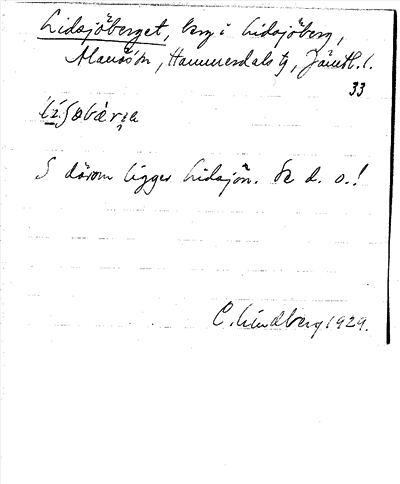 Lidsjöberget, berg i Lidsjöberg,
Alanäs sn, Hammerdals tg, Jämtl. l.
33
S därom ligger Lidsjön. Se d. o.!
C. Lindberg 1929.